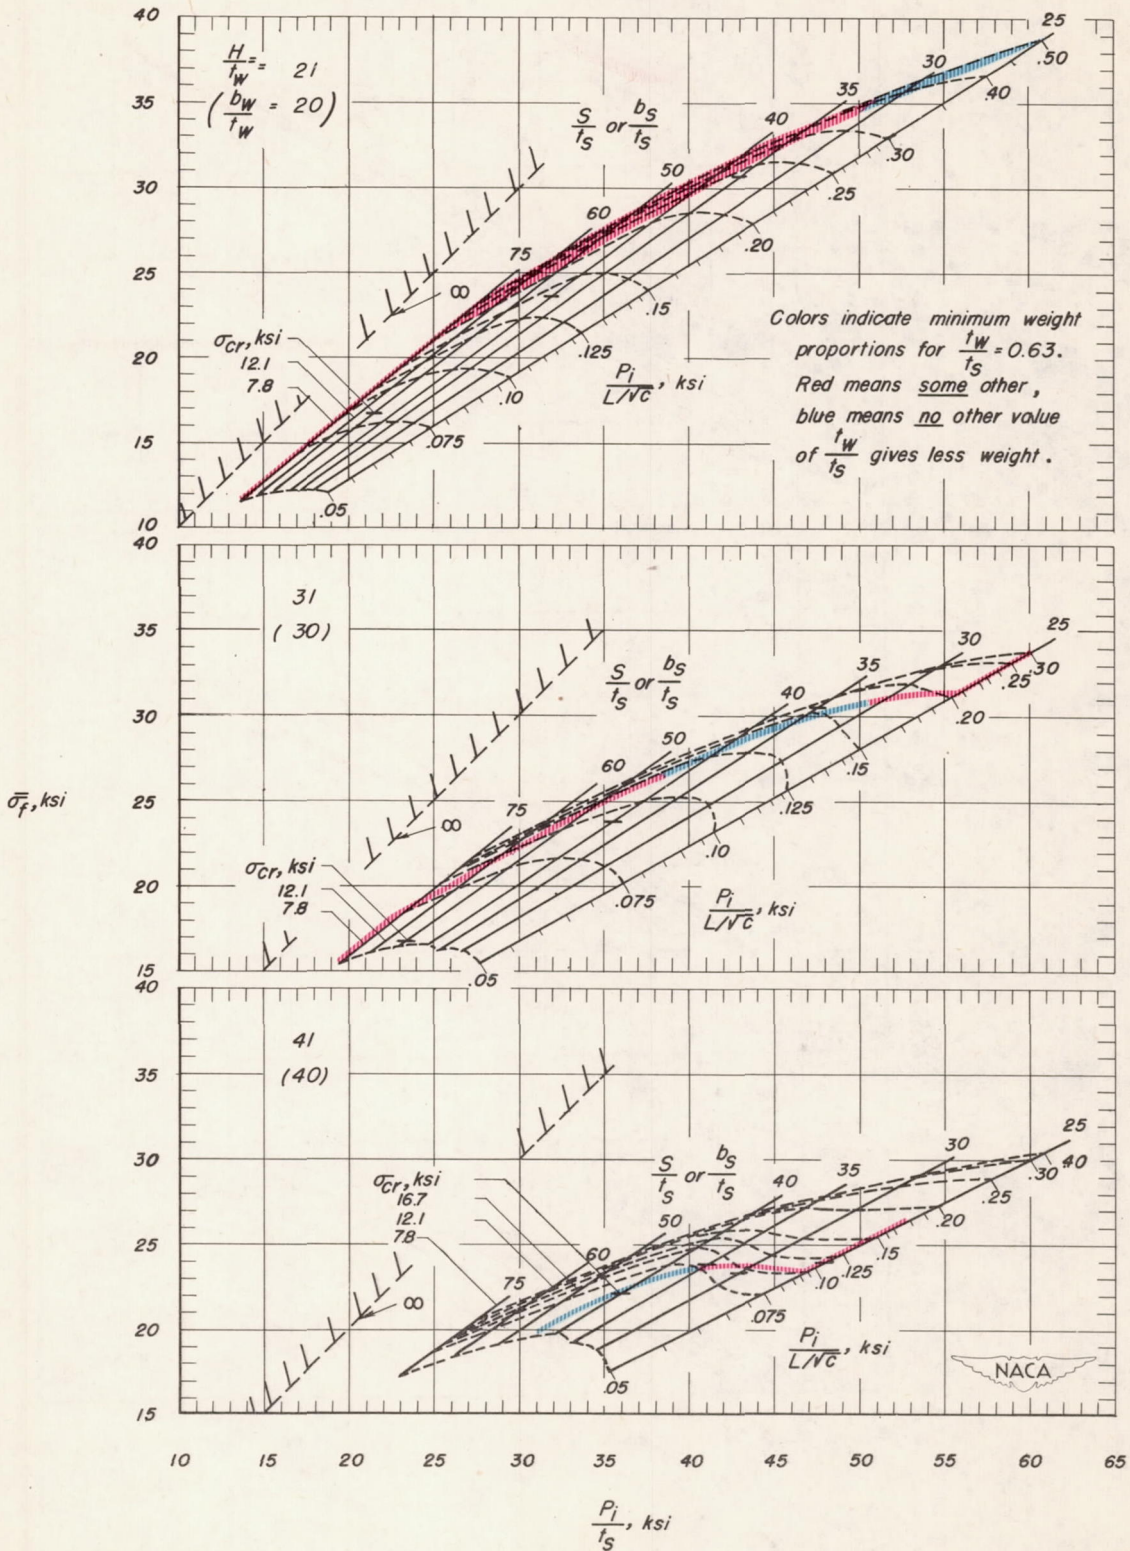 40
35
30
25
20
15
10
H/t_W = 21
(b_W/t_W = 20)
S/t_S or b_S/t_S
25
30
35
40
50
60
75
∞
.50
.40
.30
.25
.20
.15
.125
.10
.075
.05
σ_cr, ksi
12.1
7.8
P_i/(L/√c), ksi
Colors indicate minimum weight
proportions for t_W/t_S = 0.63.
Red means some other,
blue means no other value
of t_W/t_S gives less weight.
40
35
30
25
20
15
31
(30)
S/t_S or b_S/t_S
25
30
35
40
50
60
75
∞
.30
.25
.20
.15
.125
.10
.075
.05
σ_cr, ksi
12.1
7.8
P_i/(L/√c), ksi
σ̄_f, ksi
40
35
30
25
20
15
41
(40)
S/t_S or b_S/t_S
25
30
35
40
50
60
75
∞
.40
.30
.25
.20
.15
.125
.10
.075
.05
σ_cr, ksi
16.7
12.1
7.8
P_i/(L/√c), ksi
NACA
10 15 20 25 30 35 40 45 50 55 60 65
P_i/t_S, ksi